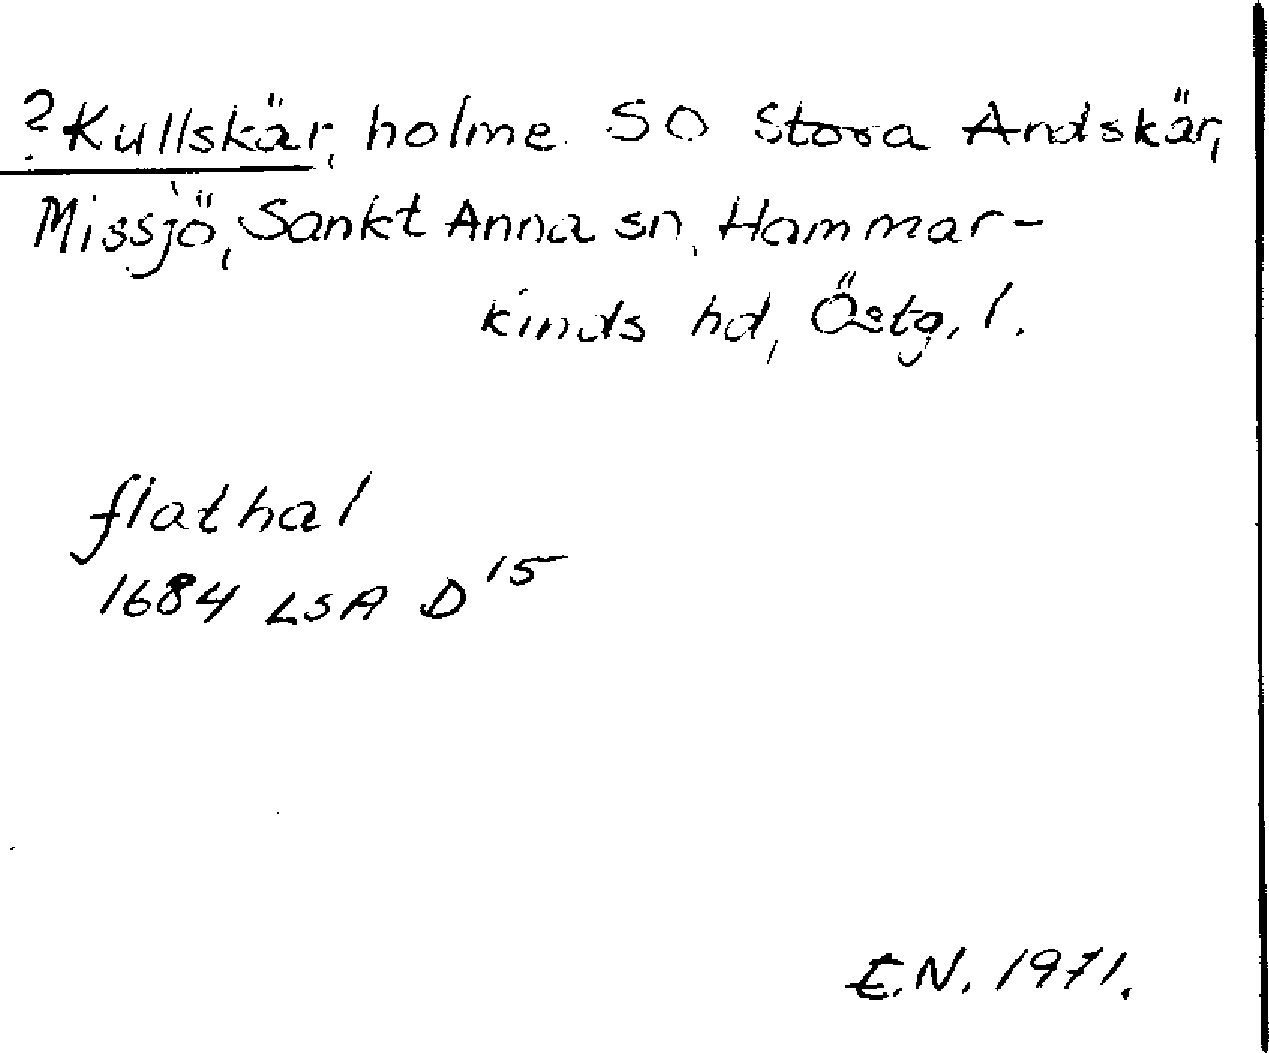 ?Kullskär, holme SO Stora Andskär,
Missjö, Sankt Anna sn, Hammar-
kinds hd, Östg. l.
flathal
1684 LSA D 15
E.N. 1971.